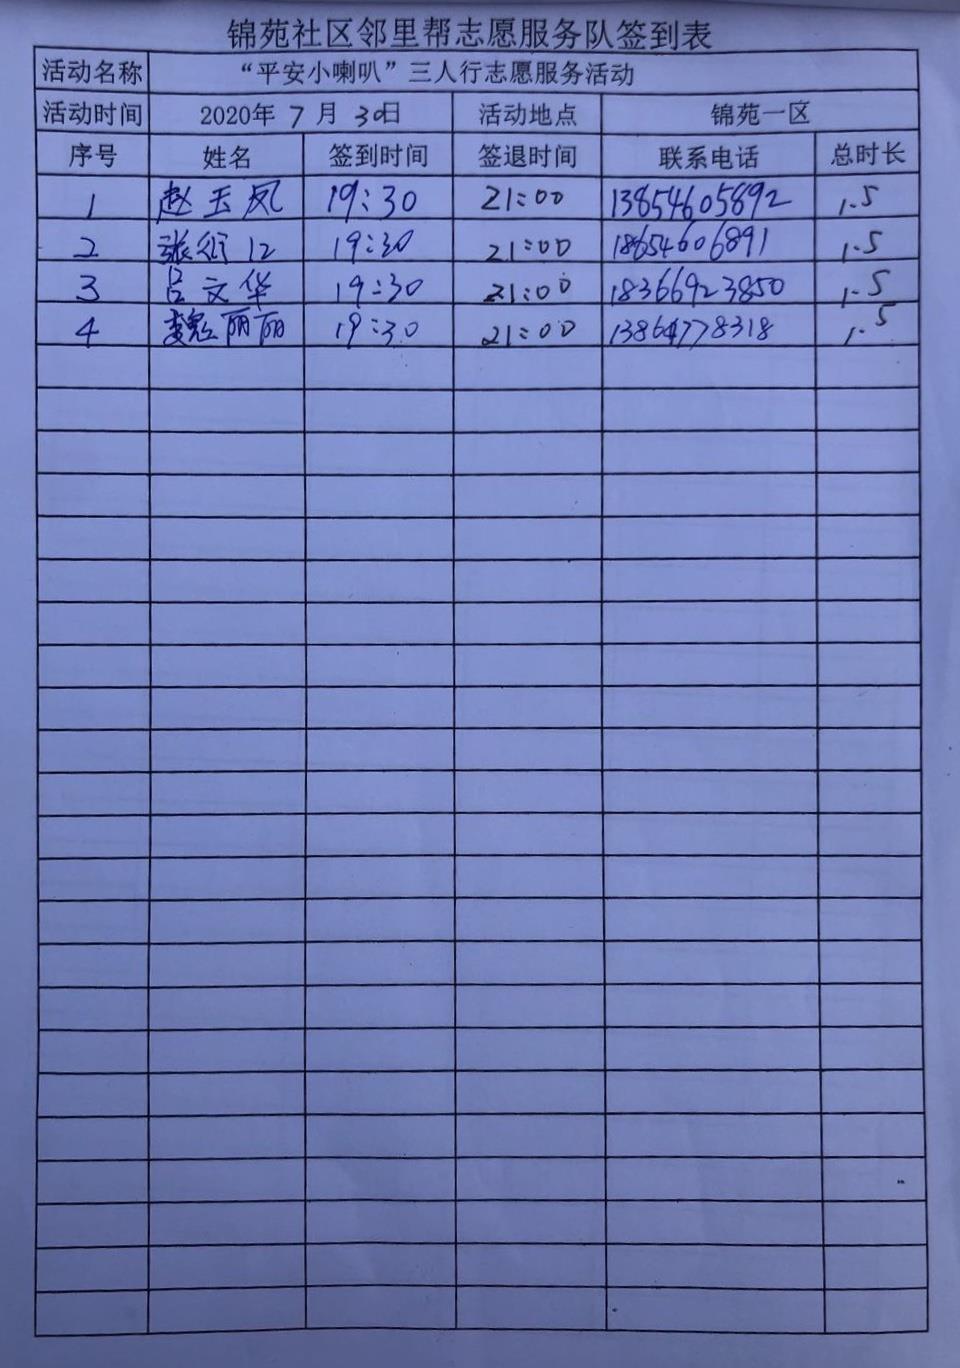 锦苑社区邻里帮志愿服务队签到表
活动名称 “平安小喇叭”三人行志愿服务活动
活动时间 2020年 7 月 30日 活动地点 锦苑一区
序号 姓名 签到时间 签退时间 联系电话 总时长
1 赵玉凤 19:30 21:00 13854605892 1.5
2 张 19:30 21:00 18654606891 1.5
3 吕文华 19:30 21:00 18366923850 1.5
4 魏丽丽 19:30 21:00 13864778318 1.5